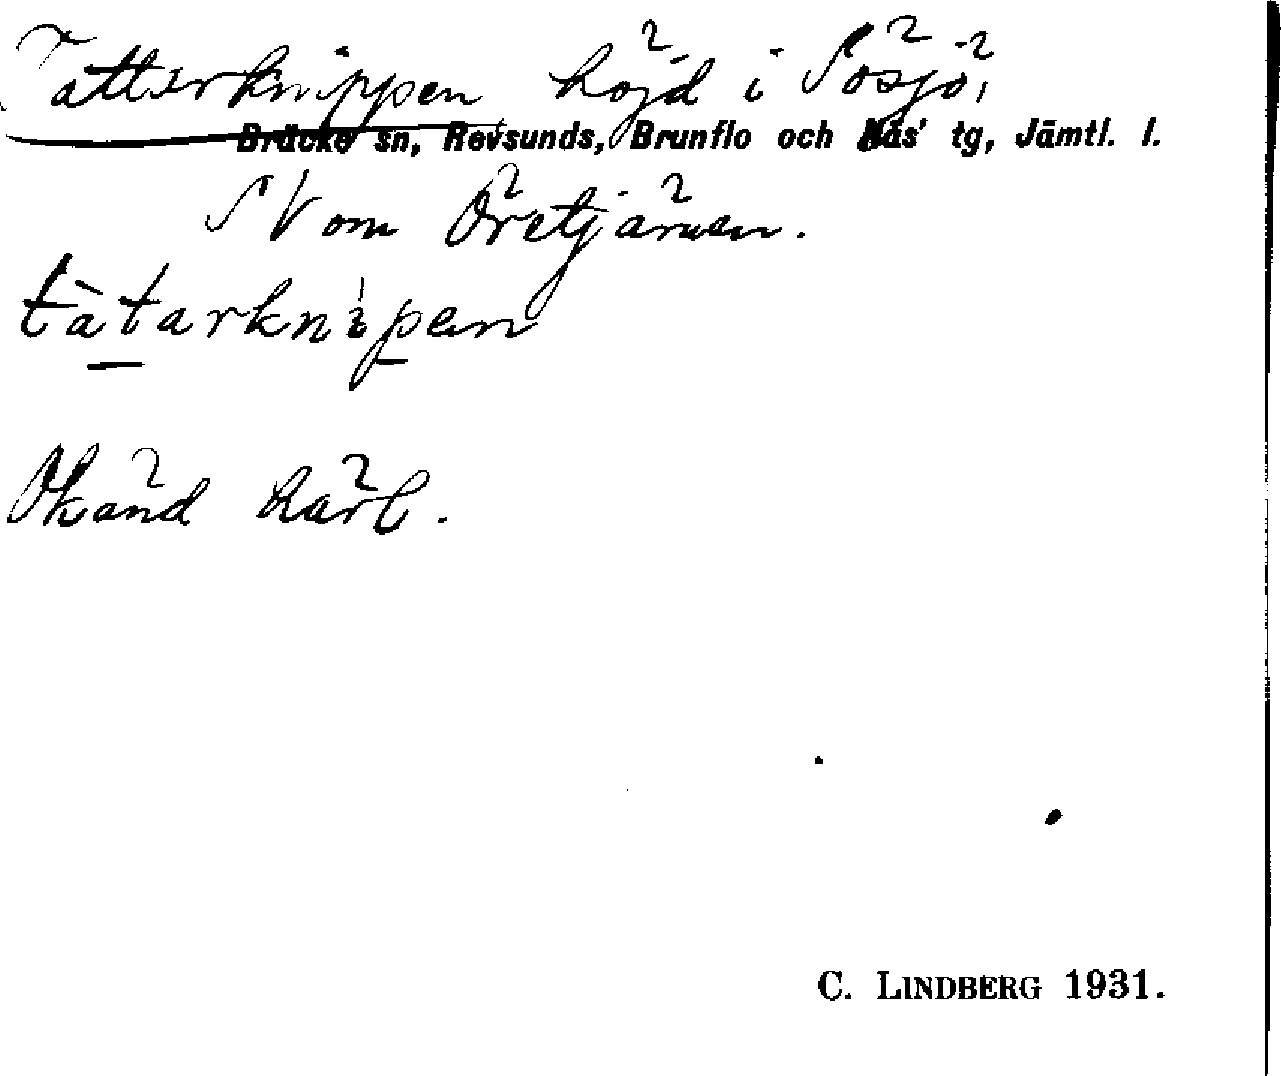 Tatterknippen höjd i Sösjö,
Bräcke sn, Revsunds, Brunflo och Näs' tg, Jämtl. l.
SV om Öretjärnen.
tàtarknipen
Okänd härl.
C. LINDBERG 1931.